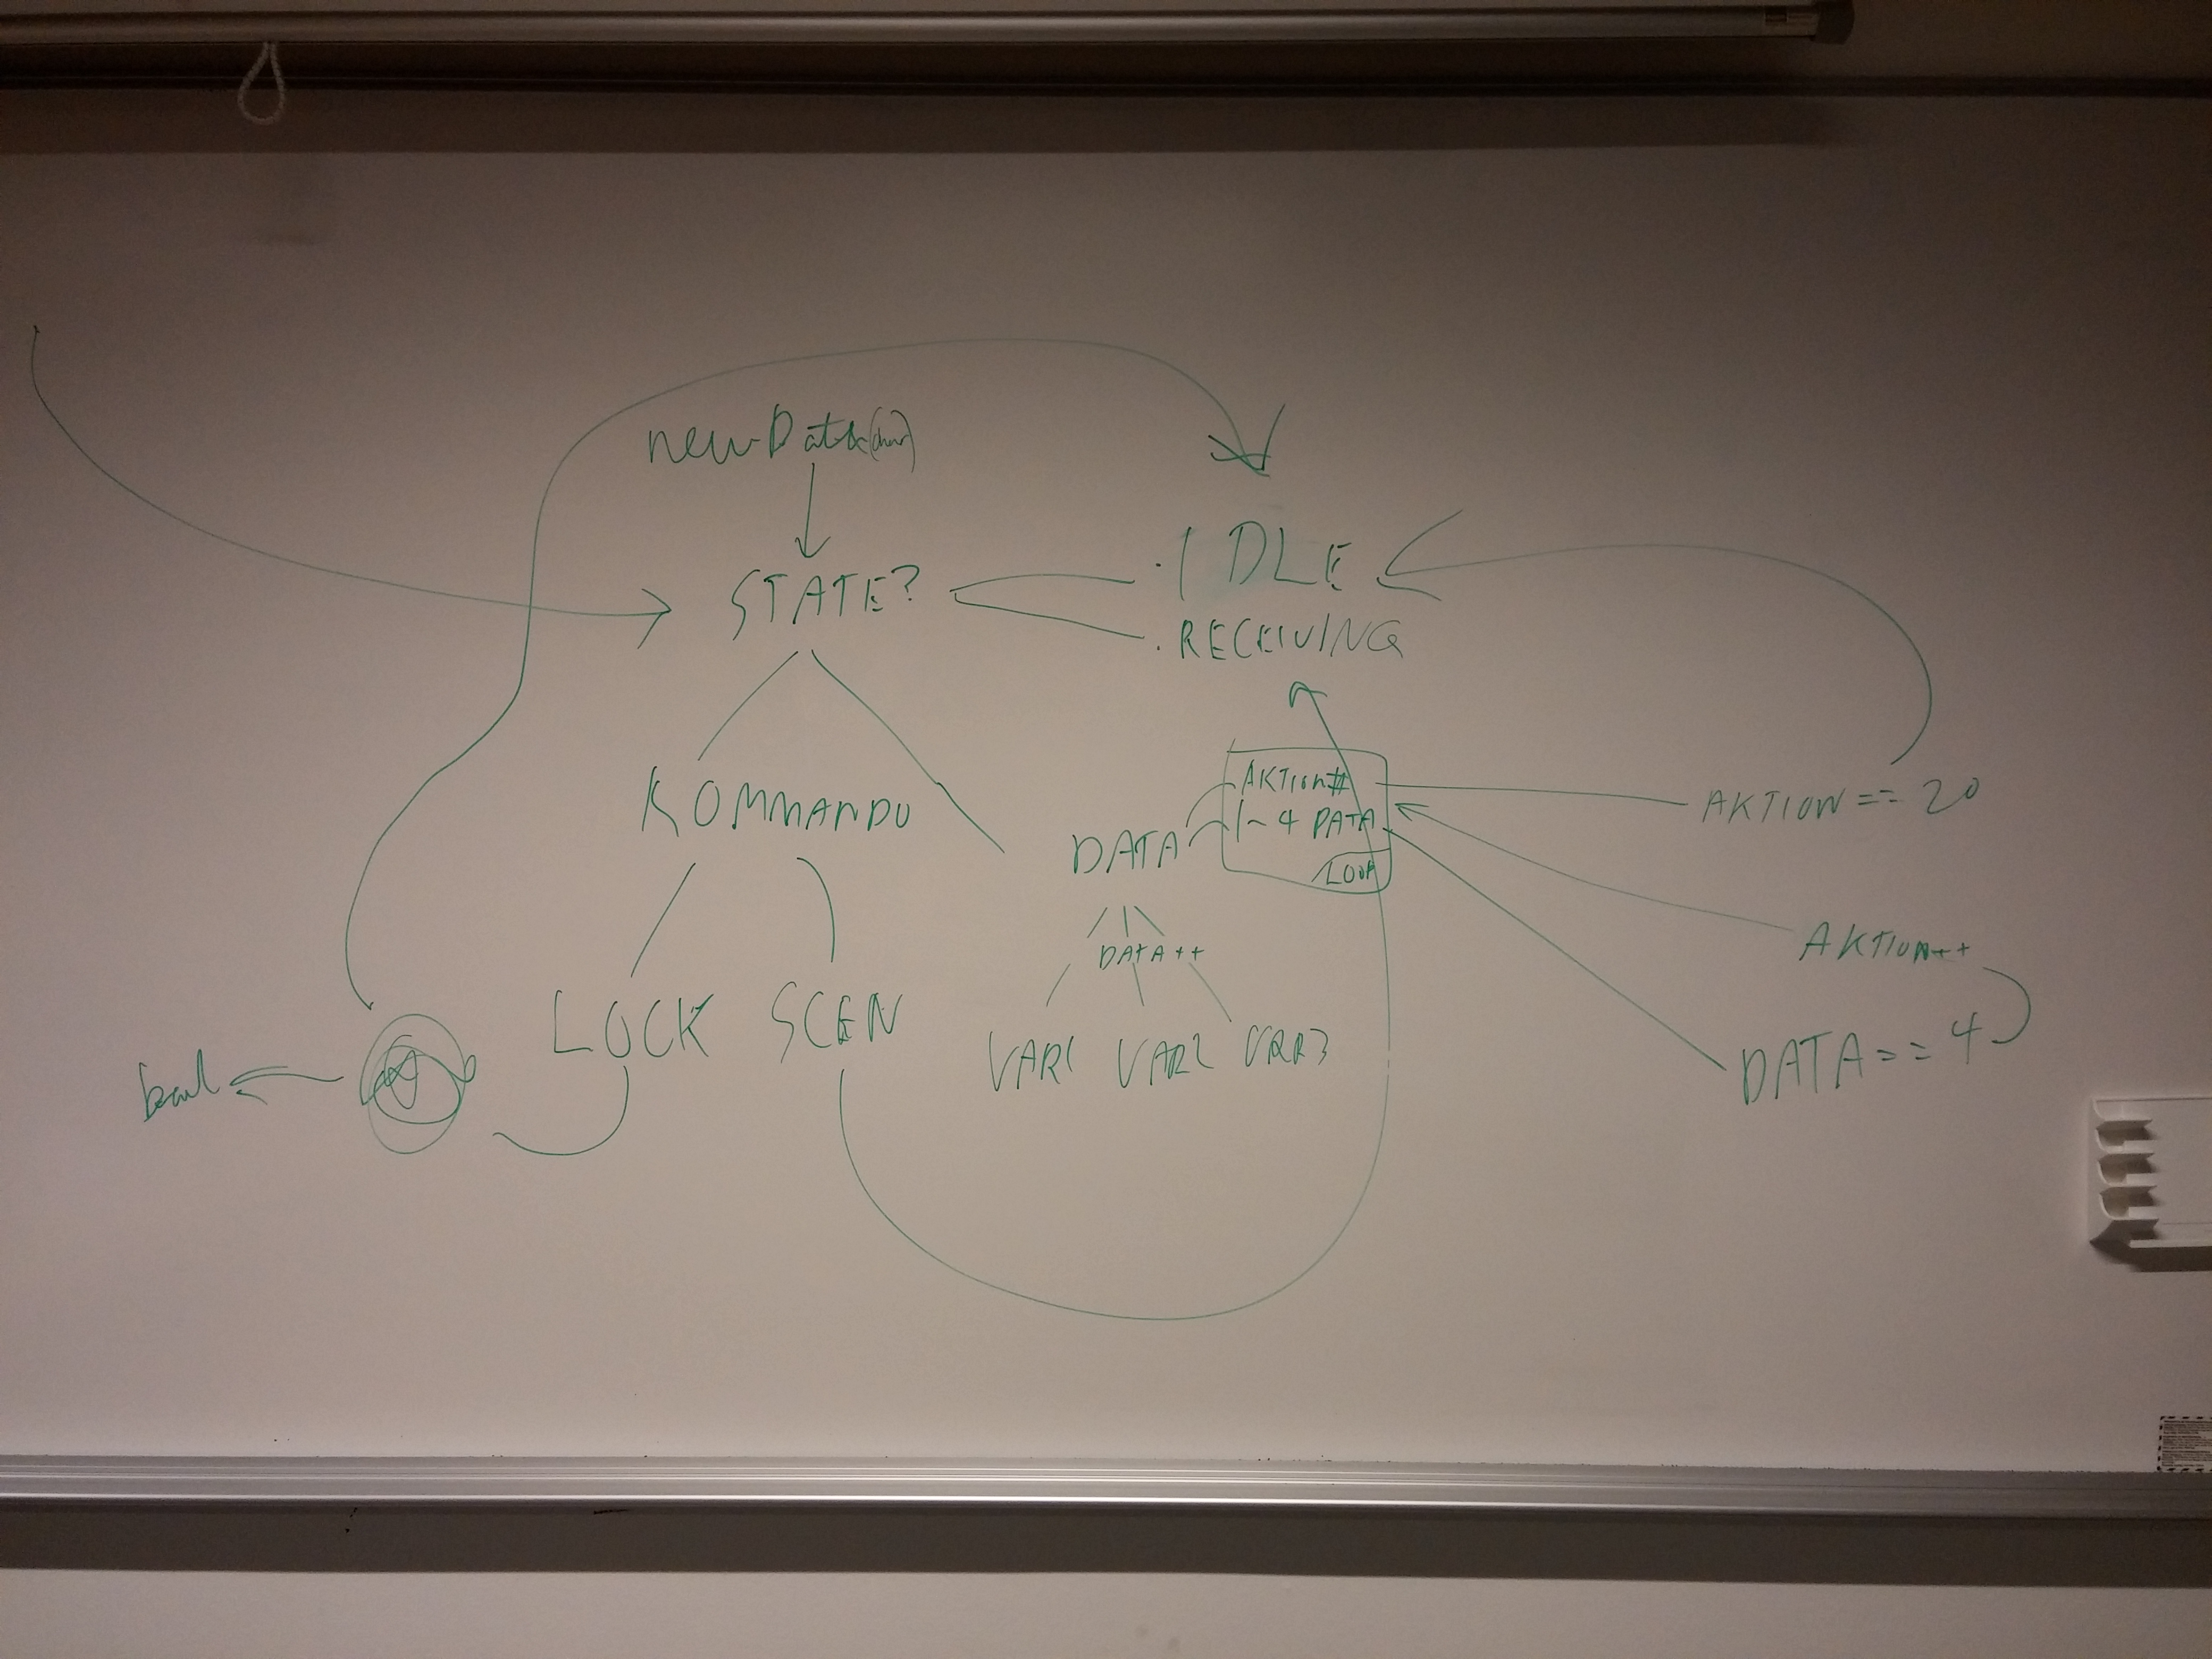 newData(char)
STATE?
IDLE
RECEIVING
KOMMANDO
DATA
AKTION#
1-4 DATA
LOOP
AKTION == 20
DATA++
AKTION++
LOCK SCEN
VAR1 VAR2 VAR3
DATA == 4